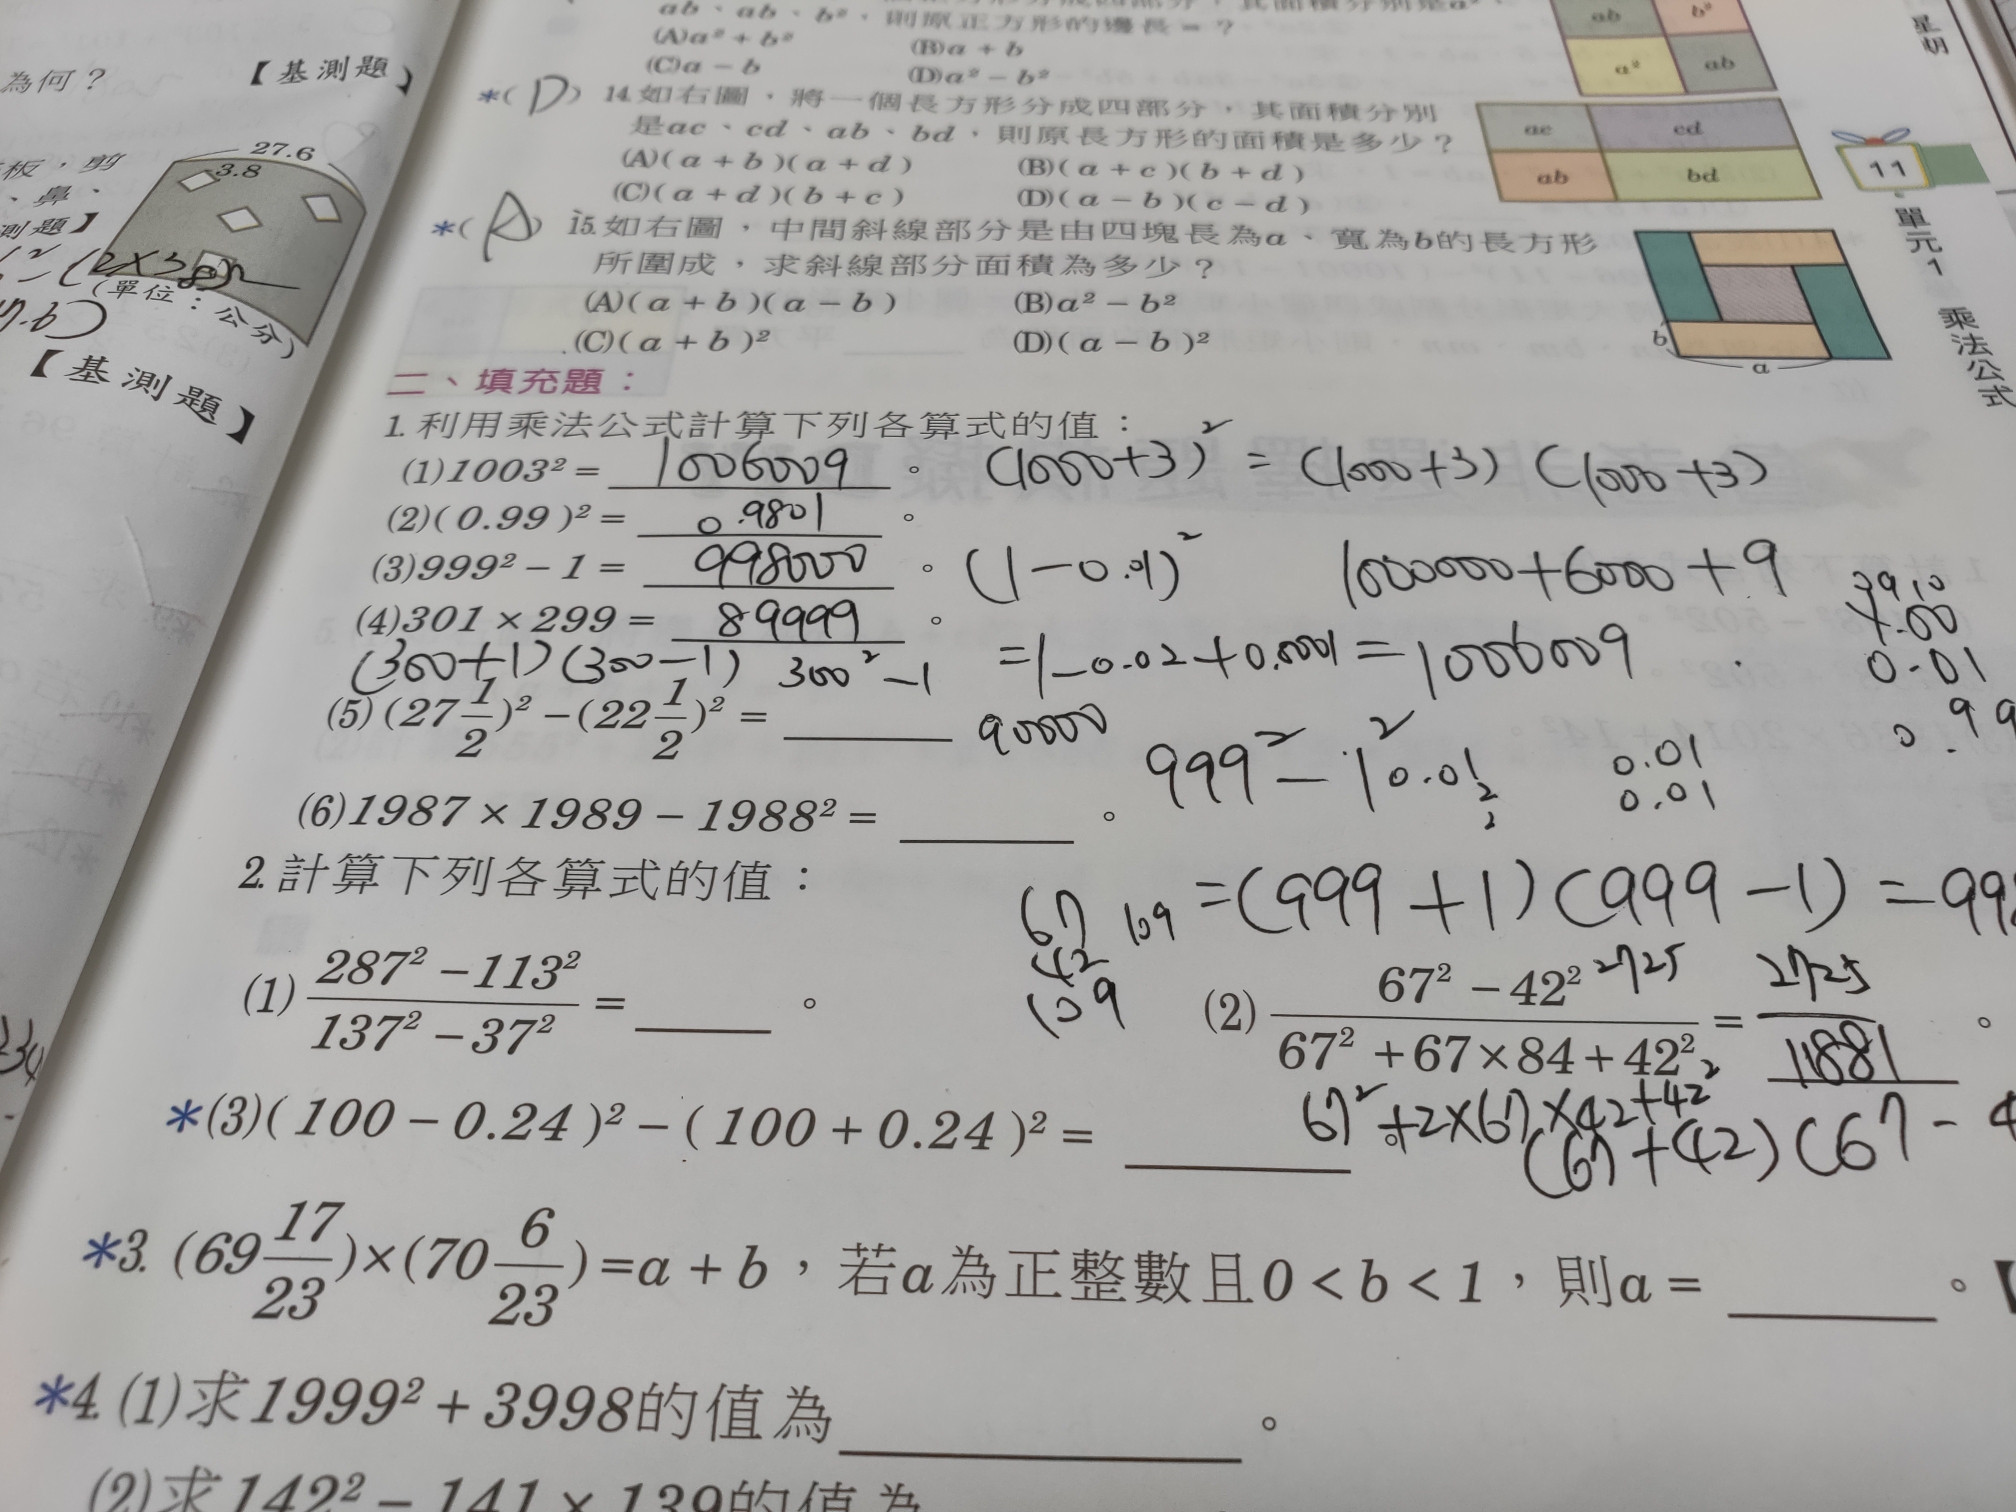 為何？
【基測題】
27.6
3.8
板，剪
、鼻、
測題】
(單位：公分)
【基測題】
ab、ab、b²，則原正方形的邊長=？
(A)a²+b²
(B)a+b
(C)a-b
(D)a²-b²
ab
b²
a²
ab
*(D) 14.如右圖，將一個長方形分成四部分，其面積分別
是ac、cd、ab、bd，則原長方形的面積是多少？
(A)(a+b)(a+d)
(B)(a+c)(b+d)
(C)(a+d)(b+c)
(D)(a-b)(c-d)
ac
cd
ab
bd
*(A) 15.如右圖，中間斜線部分是由四塊長為a、寬為b的長方形
所圍成，求斜線部分面積為多少？
(A)(a+b)(a-b)
(B)a²-b²
(C)(a+b)²
(D)(a-b)²
b
a
11
單元1 乘法公式
二、填充題：
1.利用乘法公式計算下列各算式的值：
(1)1003²= 1006009 。 (1000+3)² = (1000+3)(1000+3)
(2)(0.99)²= 0.9801 。
(3)999²-1= 998000 。 (1-0.01)² 1000000+6000+9
(4)301×299= 89999 。
(300+1)(300-1) 300²-1 =1-0.02+0.0001=1006009
0.01
0.99
(5)(27 1/2)²-(22 1/2)²= 90000
999²-1² 0.01
0.01
0.01
(6)1987×1989-1988²= 。
2.計算下列各算式的值：
=(999+1)(999-1)=998
67 109
42
109
(1) 287²-113² / 137²-37² = 。
(2) 67²-42² / 67²+67×84+42² = 2725/11881 。
2725
67²+2×67×42+42²
(67+42)(67-4
*(3)(100-0.24)²-(100+0.24)²= 。
*3. (69 17/23)×(70 6/23)=a+b，若a為正整數且0<b<1，則a= 。【
*4.(1)求1999²+3998的值為 。
(2)求142²-141×139的值為